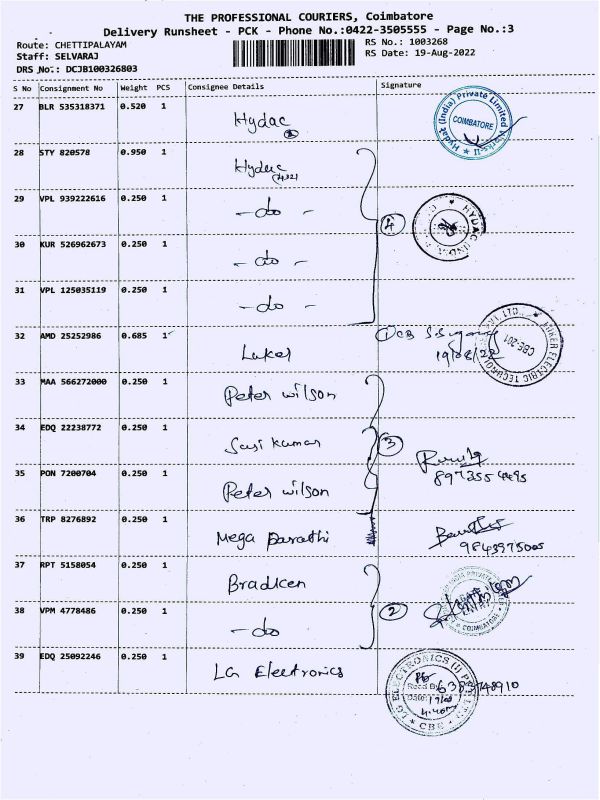 THE PROFESSIONAL COURIERS, Coimbatore
Delivery Runsheet - PCK - Phone No.:0422-3505555 - Page No.:3
Route: CHETTIPALAYAM
RS No.: 1003268
Staff: SELVARAJ
RS Date: 19-Aug-2022
DRS No: DCJB100326803
S No Consignment No Weight PCS Consignee Details Signature
27 BLR 535318371 0.520 1 Hydac
Hydac (India) Private Limited
COIMBATORE
28 STY 820578 0.950 1 Hydac
29 VPL 939222616 0.250 1 -do-
4
30 KUR 526962673 0.250 1 -do-
31 VPL 125035119 0.250 1 -do-
32 AMD 25252986 0.685 1 Luker
19/08/22
CBE-201
33 MAA 566272000 0.250 1 Peter Wilson
34 EDQ 22238772 0.250 1 Sasi Kumar
3
35 PON 7200704 0.250 1 Peter Wilson
36 TRP 8276892 0.250 1 Mega Barathi
9843975005
37 RPT 5158054 0.250 1 Bradken
38 VPM 4778486 0.250 1 -do-
2
COIMBATORE
39 EDQ 25092246 0.250 1 LG Electronics
LG ELECTRONICS (I) P LTD
Recd By
6383748910
Date:
CBE